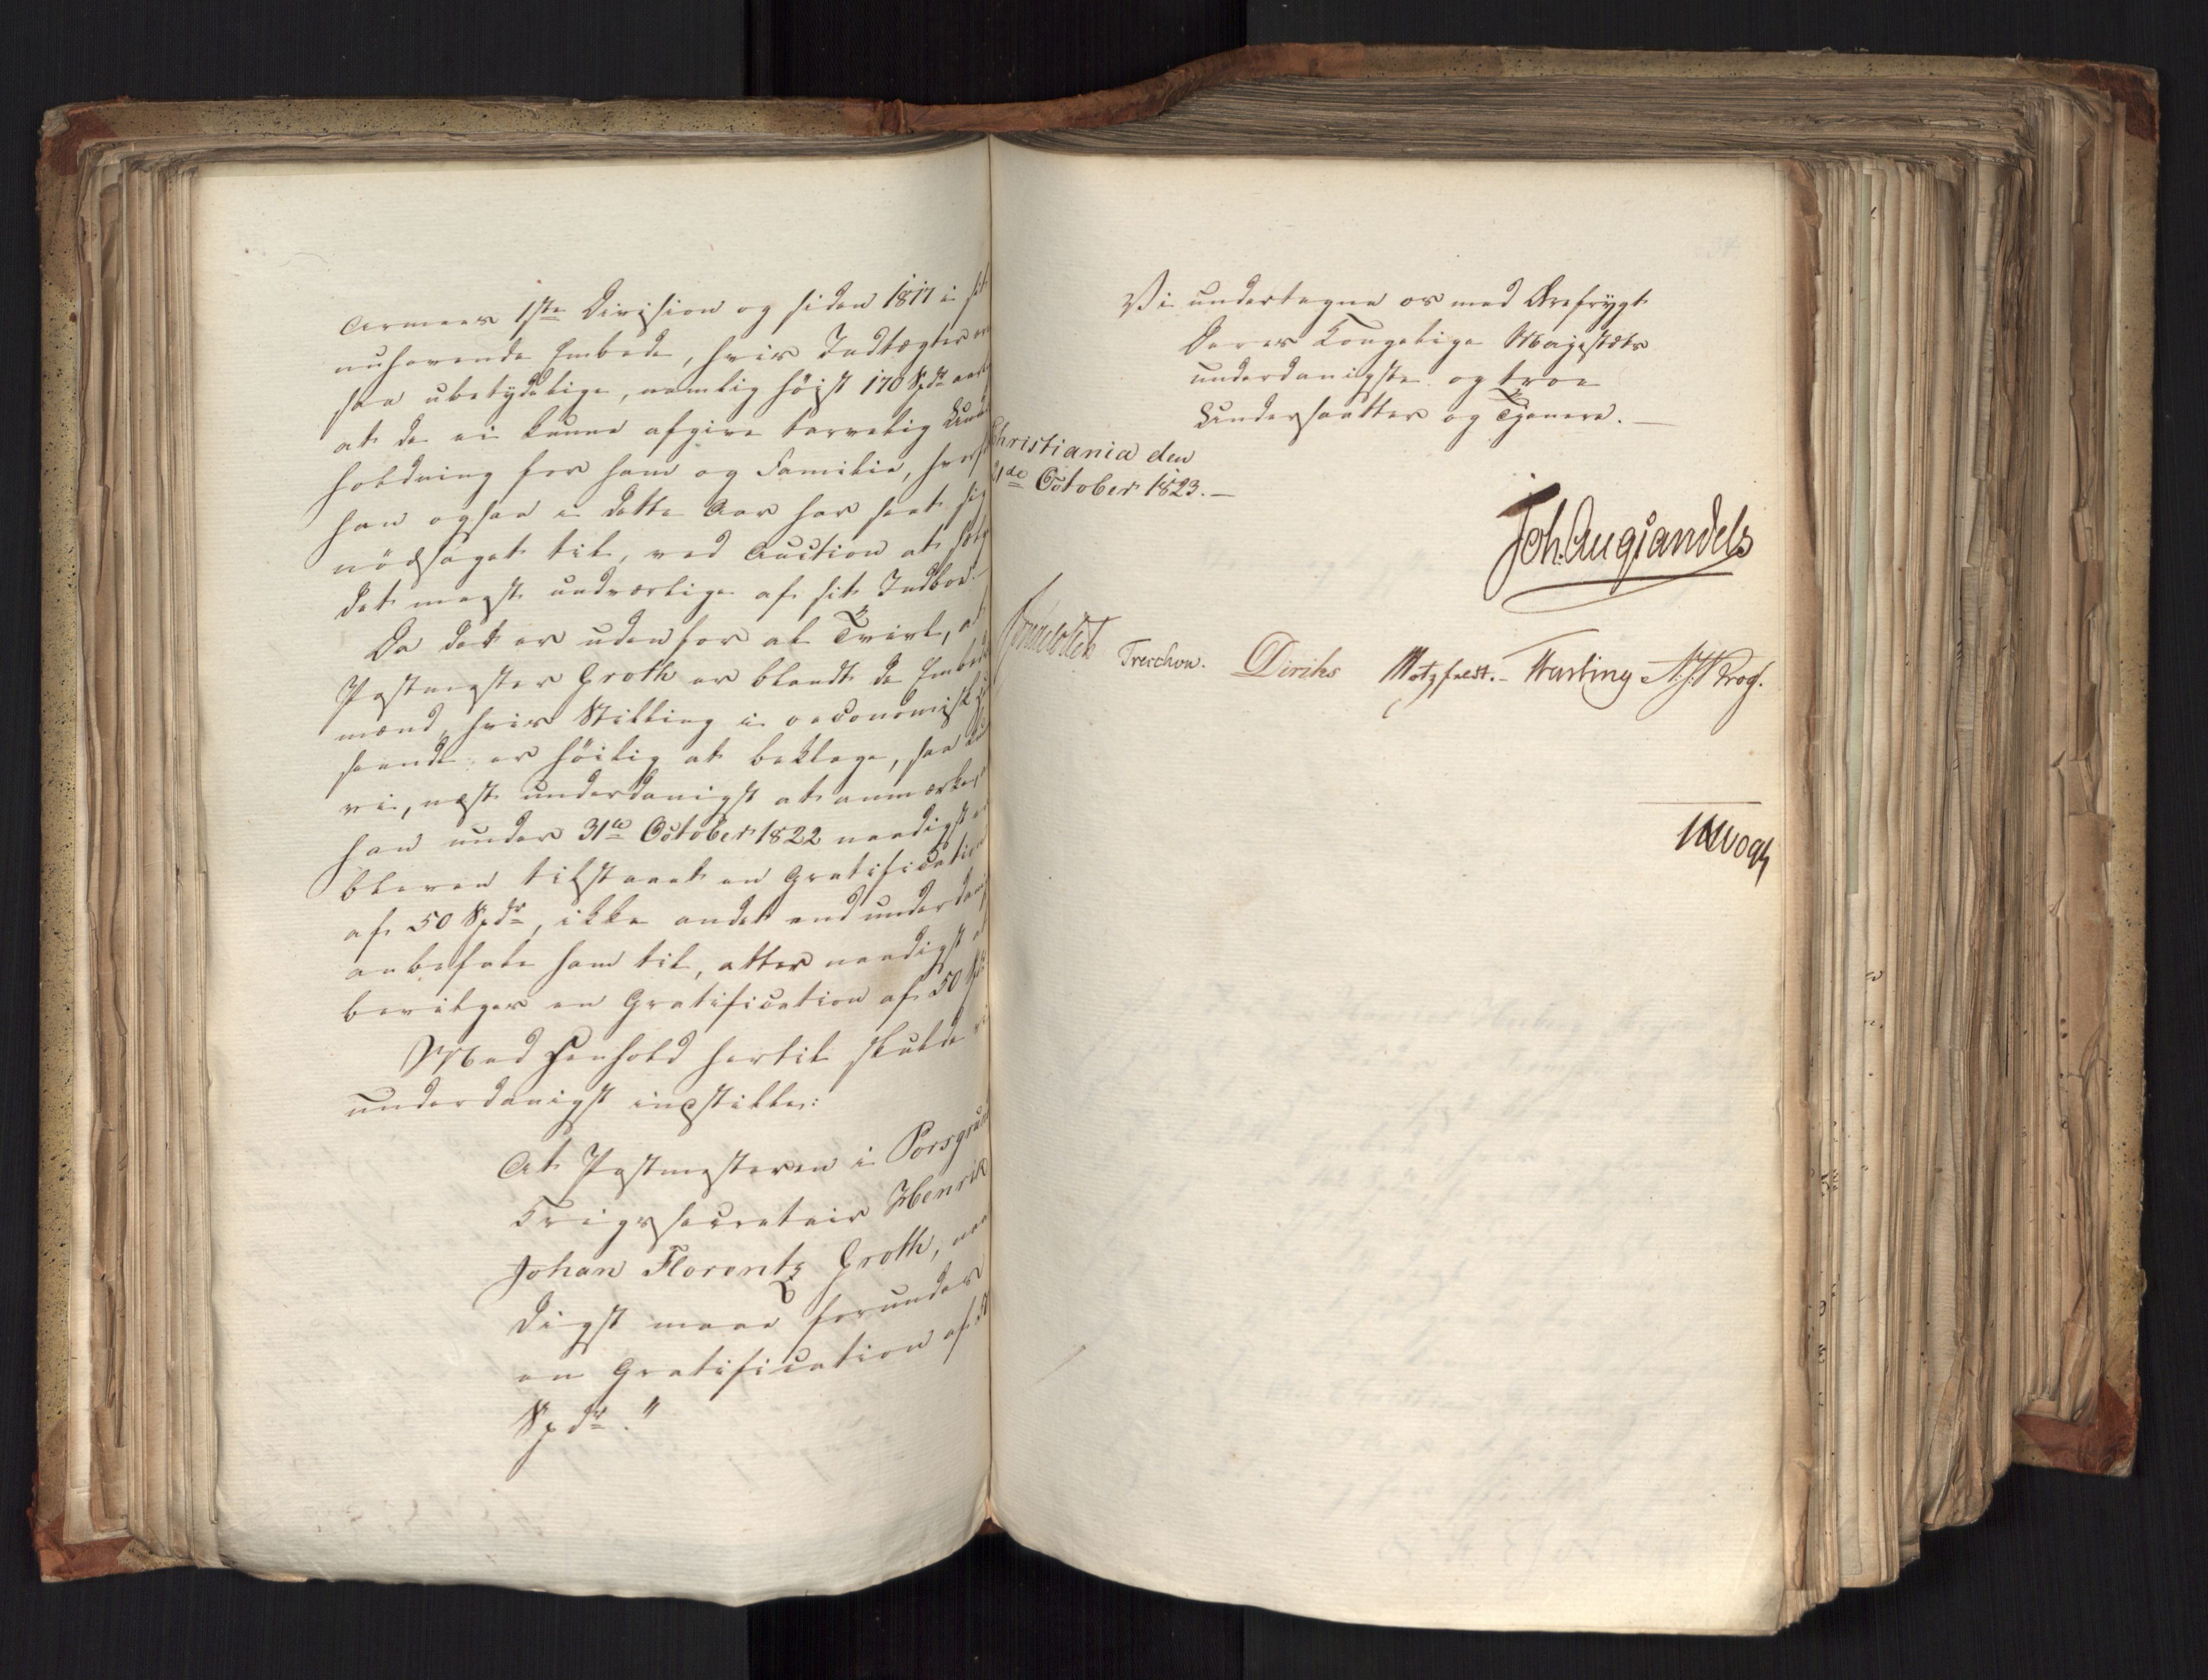 Armeens 1ste Division og siden 1817 i sit
nuhavende Embede, hvis Indtægter ere
saa ubetydelige, nemlig höist 170 Spdr aarl
at de ei kunne afgive tarvelig Under
holdning for ham og Familie, hvorfor
han ogsaa i dette Aar har seet sig
nödsaget til, ved Auction at sælge
det meest undværlige af sit Indboe.
Da det er udenfor al Tvivl, at
Postmester Groth er blandt de Embeds
mænd, hvis Stilling i oeconomisk Hen
seende er höilig at beklage, saa kunde
vi, næst underdanigst at anmærke, at
han under 31te October 1822 naadigst er
bleven tilstaaet en Gratification
af 50 Spdr, ikke andet end underdanigst
anbefale ham til, atter naadigst at
bevilges en Gratification af 50 Spdr
Med Henhold hertil skulde vi
underdanigst indstille:
At Postmesteren i Porsgrund
Krigssecretair Henrik
Johan Florentz Groth, naa
digst maae forundes
en Gratification af 50
Spdr."
Vi undertegne os med Ærefrygt
Deres Kongelige Majestæts
underdanigste og troe
Undersaatter og Tjenere. —
Christiania den
21de October 1823. —
Joh. Aug Sandels
Sommerfeldt Treschow. Diriks Motzfeldt. - Fasting N. J. Krog.
Vogt